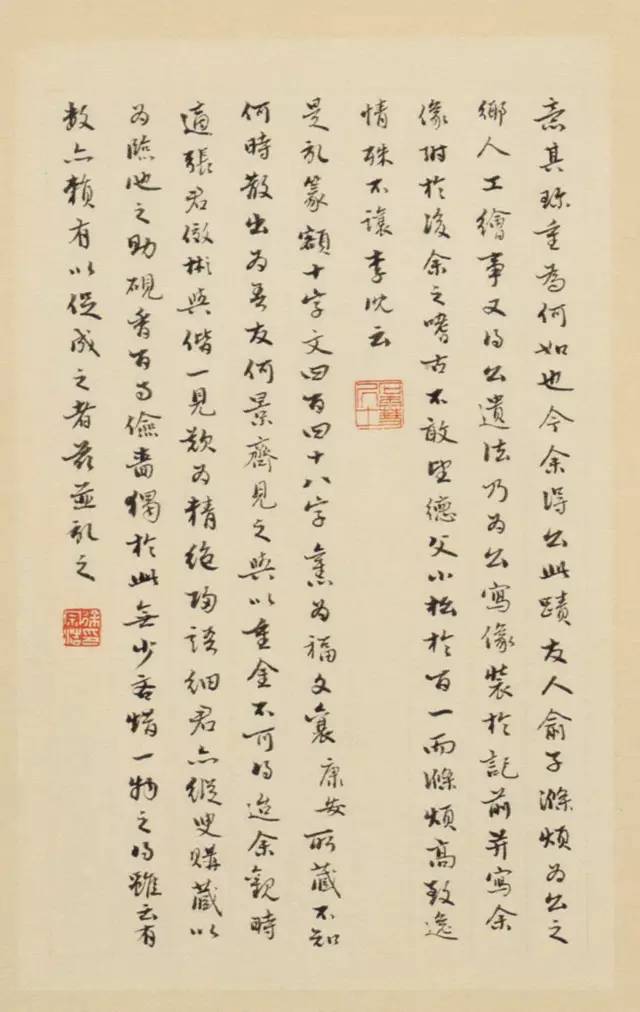 意其珍重為何如也今余得公此蹟友人俞子滌煩為公之
鄉人工繪事又得公遺法乃為公寫像裝於記前并寫余
像附於後余之嗜古不敢望德父小松於百一而滌煩高致逸
情殊不讓李沈云
是記篆額十字文四百四十八字舊為福文襄康安所藏不知
何時散出為吾友何景齋見之與以重金不可得迨余觀時
適張君傚彬與偕一見歎為精絕歸語細君亦縱叟購藏以
為臨池之助硯香百為儉嗇獨於此無少吝惜一物之得雖云有
數亦賴有以促成之者茲並記之
徐宗浩印